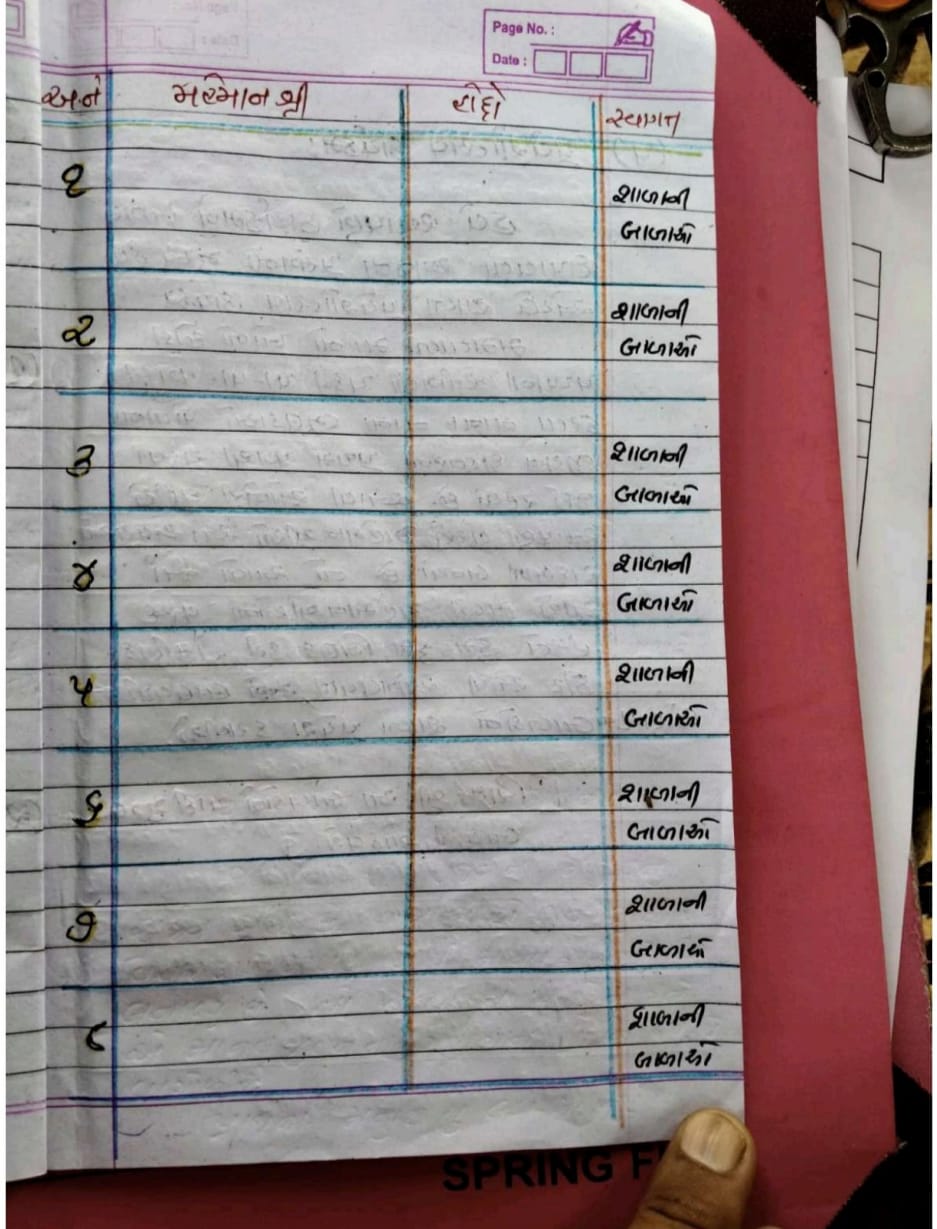 Page No. :
Date :
અ.નં મહેમાન શ્રી હોદ્દો સ્વાગત
૧ શાળાની
બાળાઓ
૨ શાળાની
બાળાઓ
૩ શાળાની
બાળાઓ
૪ શાળાની
બાળાઓ
૫ શાળાની
બાળાઓ
૬ શાળાની
બાળાઓ
૭ શાળાની
બાળાઓ
૮ શાળાની
બાળાઓ
SPRING F